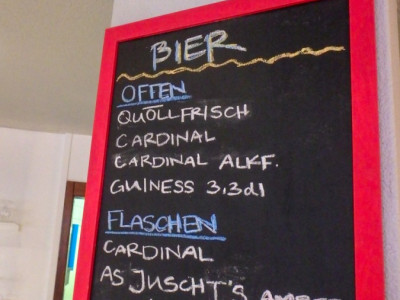 BIER
OFFEN
QUÖLLFRISCH
CARDINAL
CARDINAL ALKF.
GUINESS 3,3dl
FLASCHEN
CARDINAL
AS JUSCHT'S